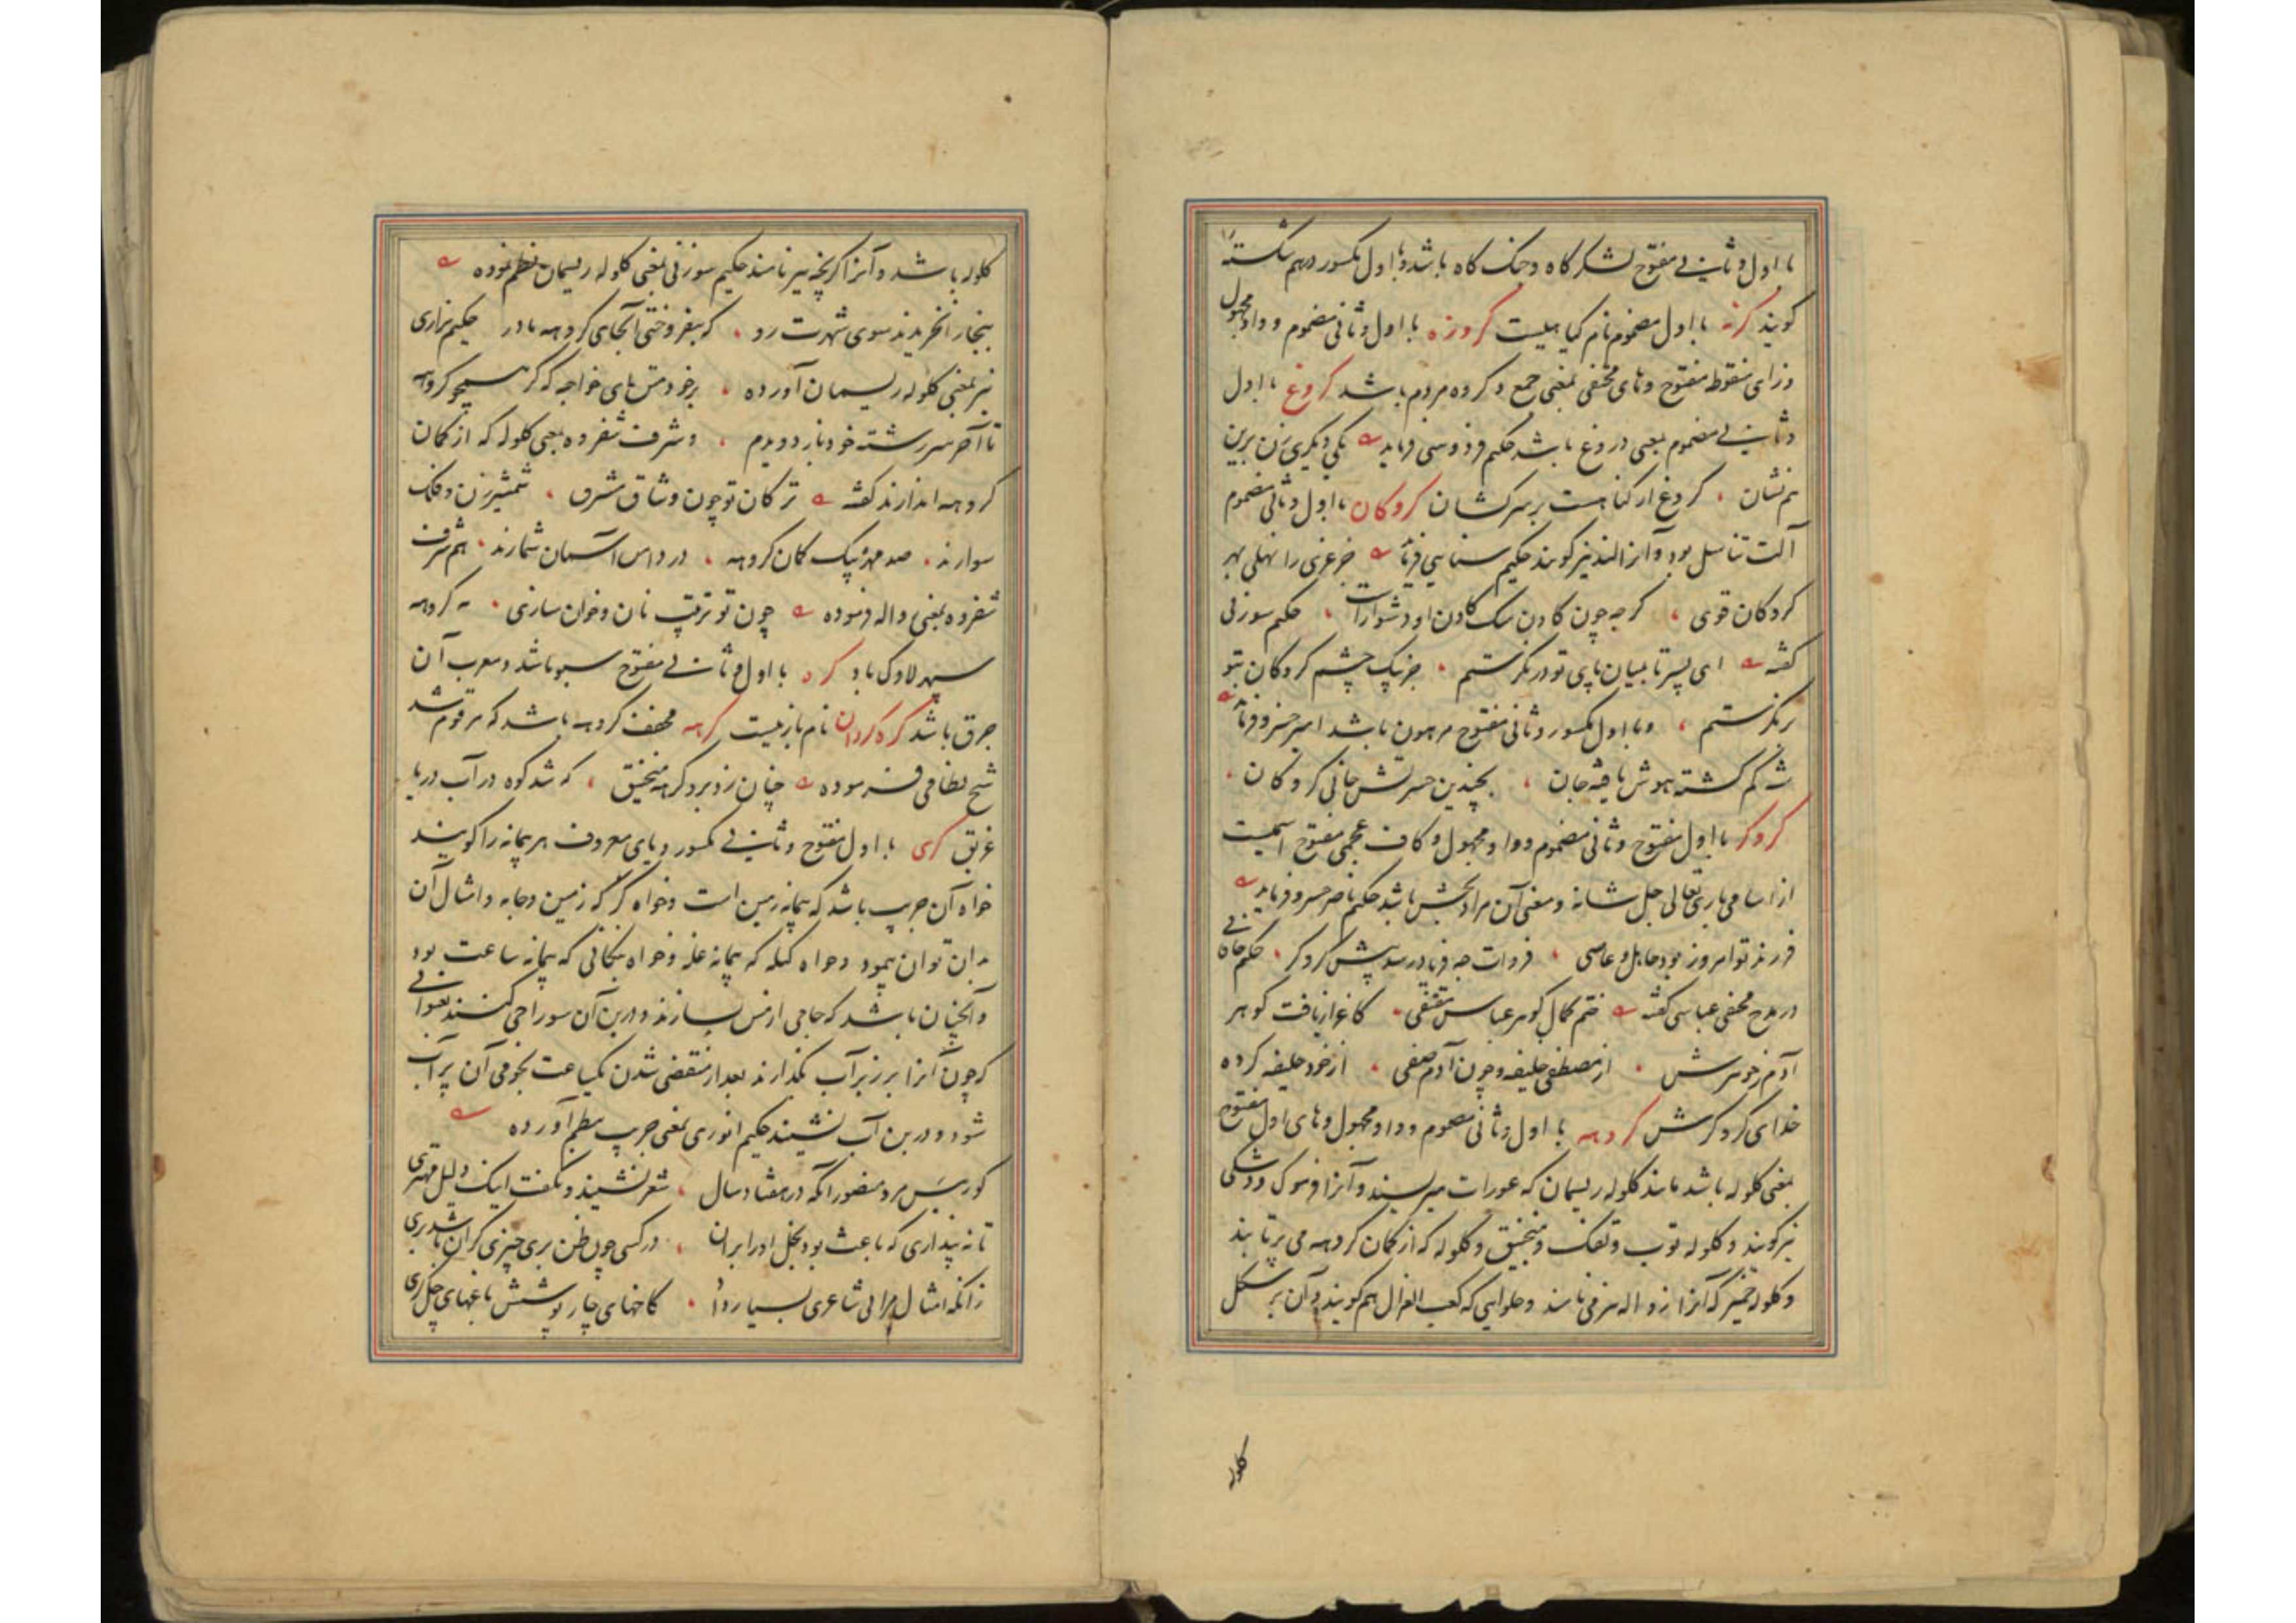 با اول و ثانی مفتوح لشکر کاه و جنک کاه باشد و با اول مکسور درهم شکسته را
کویند کرنه با اول مضموم نام کیاهیست کروزه با اول و ثانی مضموم و واو مجهول
و زای منقوط مفتوح و های مختفی بمعنی جمع و کروه مردم باشد کروغ با اول
و ثانی مضموم بمعنی دروغ باشد حکیم فردوسی فرماید یکی دیکری زن برین
هم نشان کروغ از کناهست بر سرکشان کروکان با اول و ثانی مضموم
آلت تناسل بود و آنرا الند نیز کویند حکیم سنایی فرماید خر غزی را نهلی بهر
کروکان قوی کرچه چون کادن سک کادن او دشوارست حکیم سوزنی
کفته ای پسر تا بمیان پای تو در نکرستم جز بیک چشم کروکان بتو
بر نکرستم و با اول مکسور و ثانی مفتوح مرهون باشد امیر خسرو فرماید
شه کم کشته هوش یافته جان بچندین حسرتش جانی کروکان
کروکر با اول مفتوح و ثانی مضموم و واو مجهول و کاف عجمی مفتوح اسمیست
از اسامی باری تعالی جل شانه و معنی آن مراد بخش باشد حکیم ناصر خسرو فرماید
فرزند تو امروز بود جاهل و عاصی فردات چه فریاد رسد پیش کروکر حکیم خاقانی
در مدح مختفی عباسی کفته ختم کمال کوهر عباس مقتفی کاغاز یافت کوهر
آدم ز جوهرش از مصطفی خلیفه و چون آدم صفی از خود خلیفه کرده
خدای کروکرش کروهه با اول و ثانی مضموم و واو مجهول و های اول مفتوح
بمعنی کلوله باشد مانند کلوله ریسمان که عورات میریسند و آنرا فرموک و دوشکی
نیز کویند و کلوله توب و تفنک و منجنیق و کلوله که از کمان کروهه می پرتابند
و کلوله خمیر که آنرا زواله نیز می نامند و حلوایی که کعب الغزال هم کویند و آن بر شکل
کلوله
کلوله باشد و آنرا کریخه نیز نامند حکیم سوزنی بمعنی کلوله ریسمان نظم نموده
بنجار آنخریدند سوی شهرت رد که بفروختی آنجای کروهه مادر حکیم نزاری
نیز بمعنی کلوله ریسمان آورده برخود متنهای خواجه که کر همچو کروهه
تا آخر سر رشته خود باز دویدم و شرف شفروه بمعنی کلوله که از کمان
کروهه اندازند کفته ترکان تو چون وشاق مشرق شمشیرزن و فلک
سوارند صد مهره بیک کمان کروهه در داس آسمان شمارند هم شرف
شفروه بمعنی زواله فرموده چون تو ترتیب نان و خوان سازی کروهه
سپهر لاوک باد کره با اول و ثانی مفتوح سبو باشد و معرب آن
جرق باشد کره کردان نام بازیست کرهه مخفف کروهه باشد که مرقوم شد
شیخ نظامی فرموده چنان زد برو کرهه منجنیق که شد کوه در آب دریا
غریق کری با اول مفتوح و ثانی مکسور و یای معروف هر پیمانه را کویند
خواه آن جریب باشد که پیمانه زمین است و خواه کز که زمین و جامه و امثال آن
بدان توان پیمود و خواه کیله که پیمانه غله و خواه پنکانی که پیمانه ساعت بود
و آنچنان باشد که جامی از مس بسازند و در بن آن سوراخی کنند بعنوانی
که چون آنرا بر زبر آب بکذارند بعد از منقضی شدن یکساعت نجومی آن پر آب
شود و در بن آب نشیند حکیم انوری بمعنی جریب بنظم آورده
کو رییس مرو منصور آنکه در هفتاد سال شعر نشنید و نکفت اینک دلیل مهتری
تا نه پنداری که باعث بود بخل او را بران در کسی چون ظن بری چیزی کزان باشد بری
زانکه امثال مرا بی شاعری بسیار داد کاخهای چار پوشش باغهای چل کری